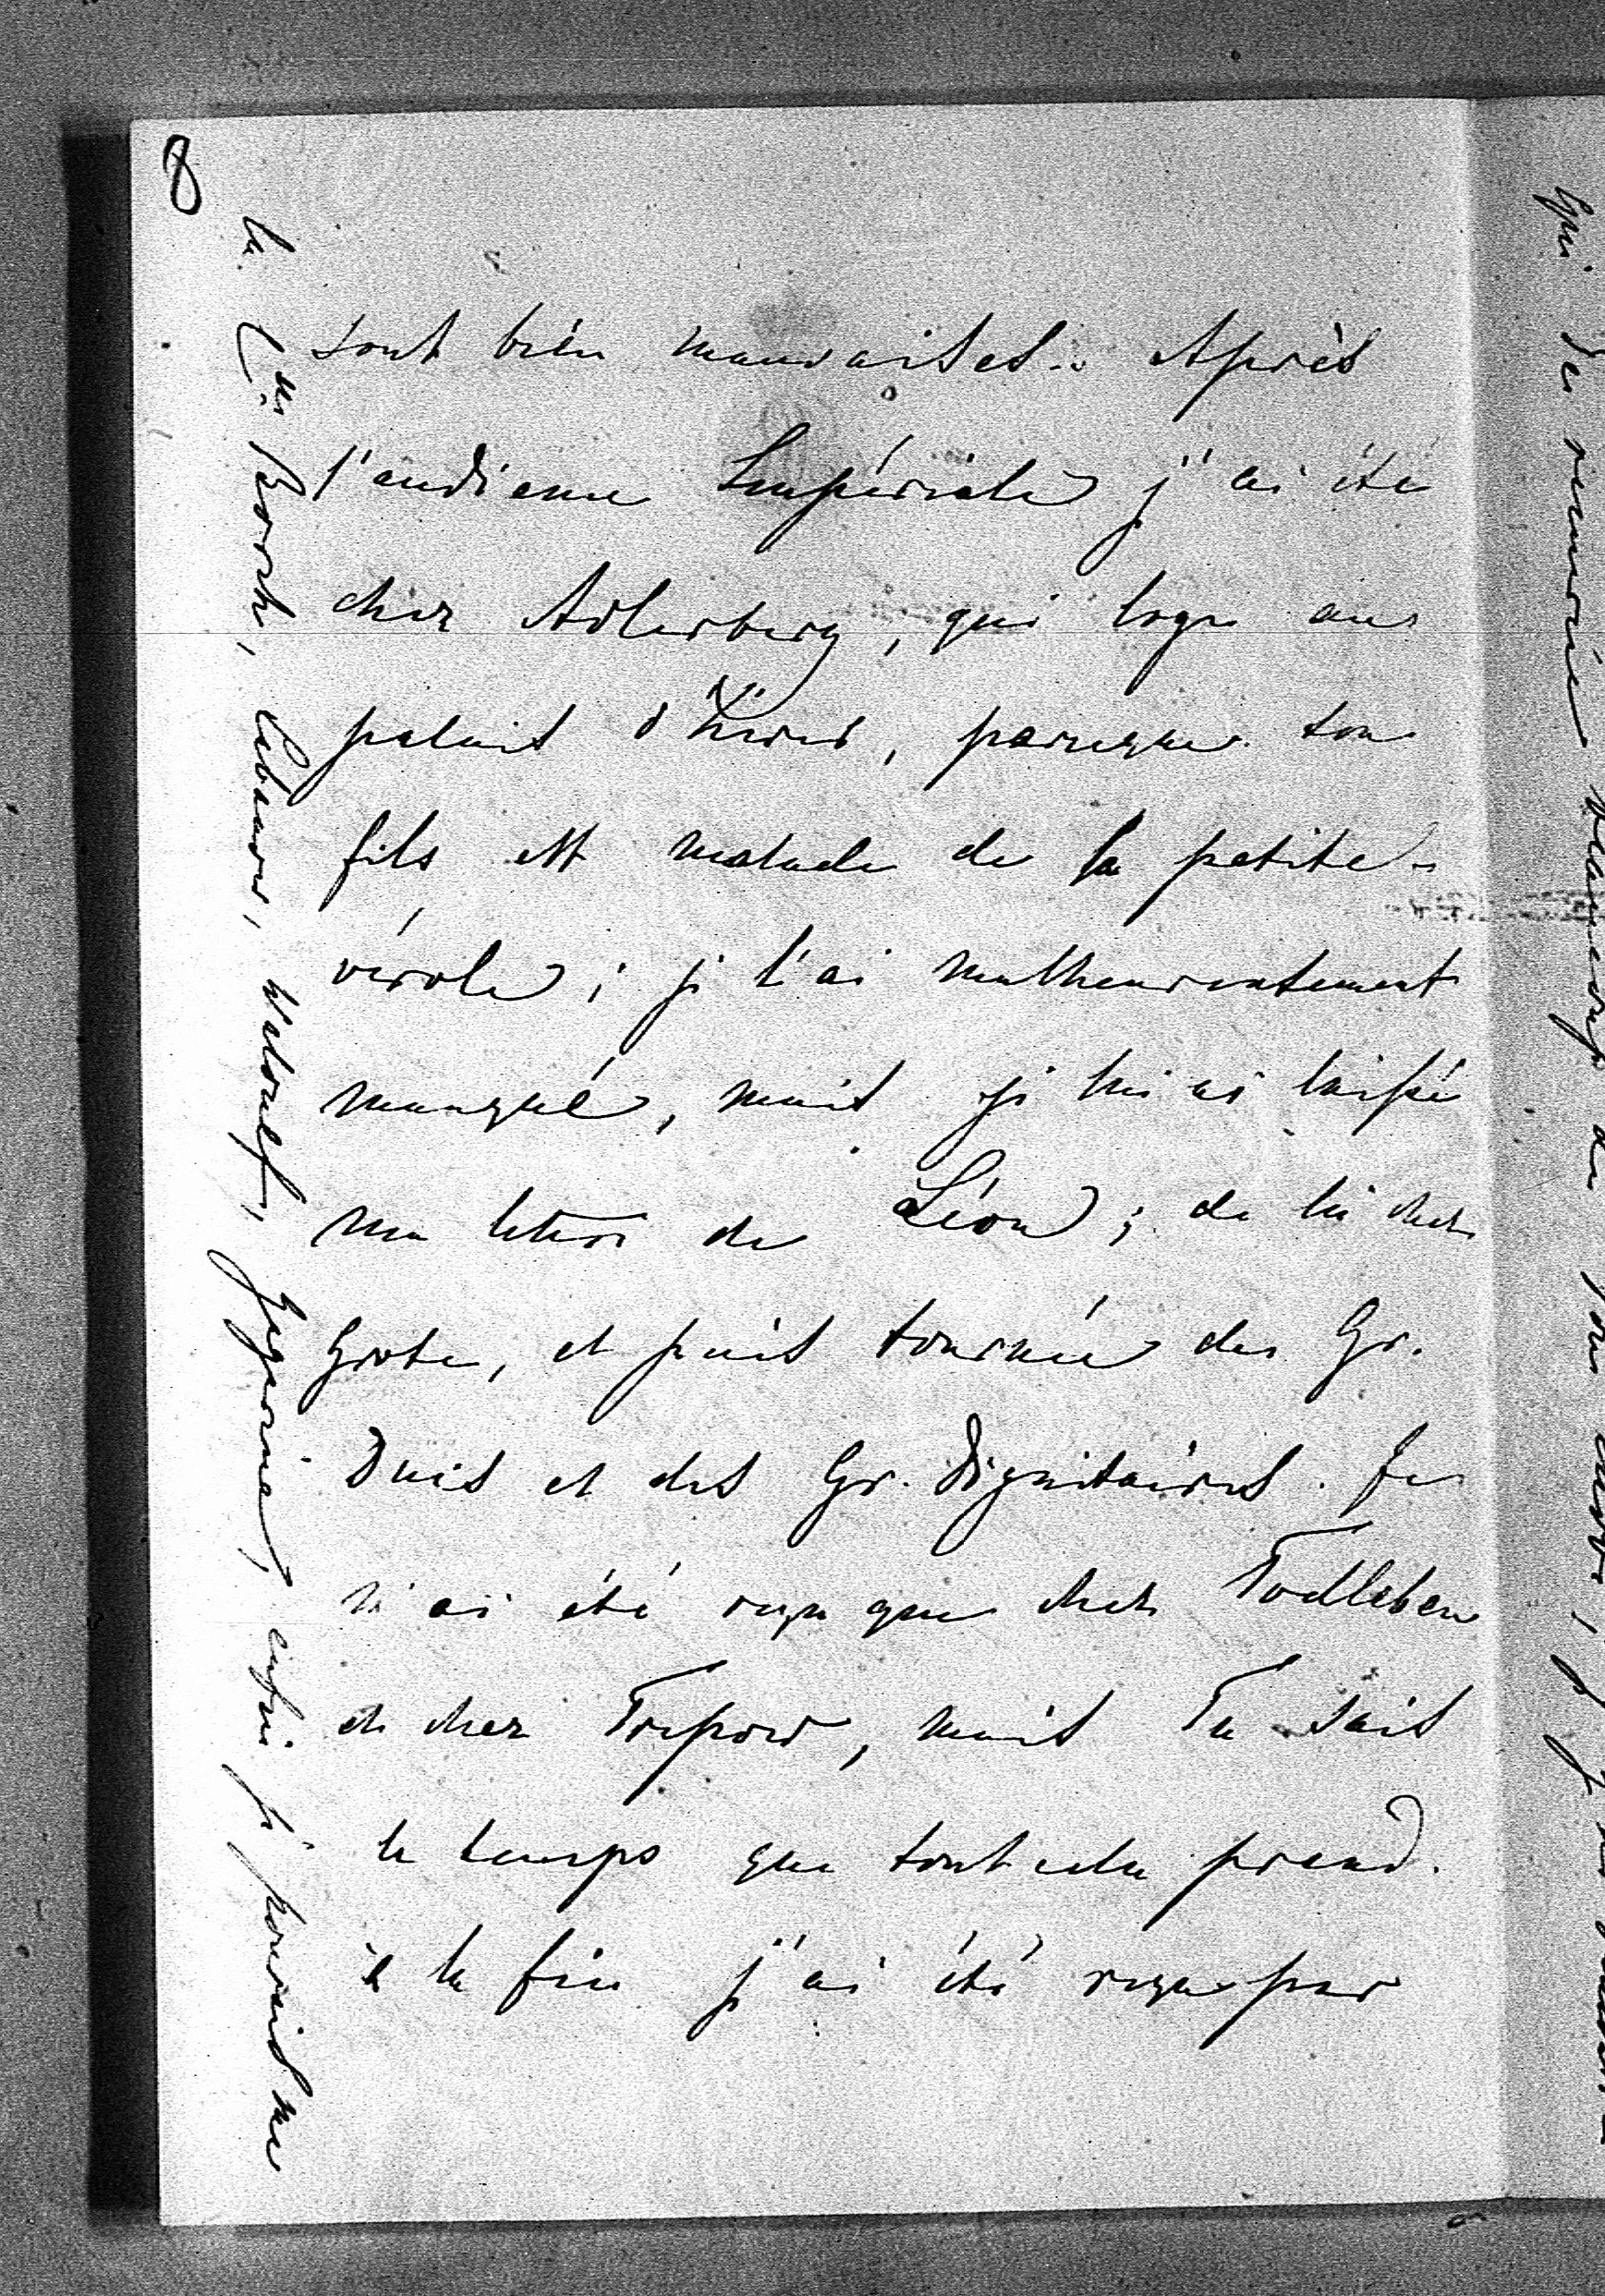 8
sont bien mauvaises. Après
l'audience Impériale j'ai été
chez Adlerberg, qui loge au
palais d'hiver, parceque son
fils est malade de la petite-
vérole; je l'ai malheureusement
manqué, mais je lui ai laissé
ma lettre de Léon; de là chez
Grote, et puis tournée des Gr.
Ducs et des Gr. Dignitaires. Je
n'ai été reçu que chez Todleben
et chez Trepow, mais Tu sais
le temps que tout cela prend.
à la fin j'ai été reçu par
la C<sup>sse</sup> Borch, Labanow, Waloueff, Gagarine, enfin je pouvais me